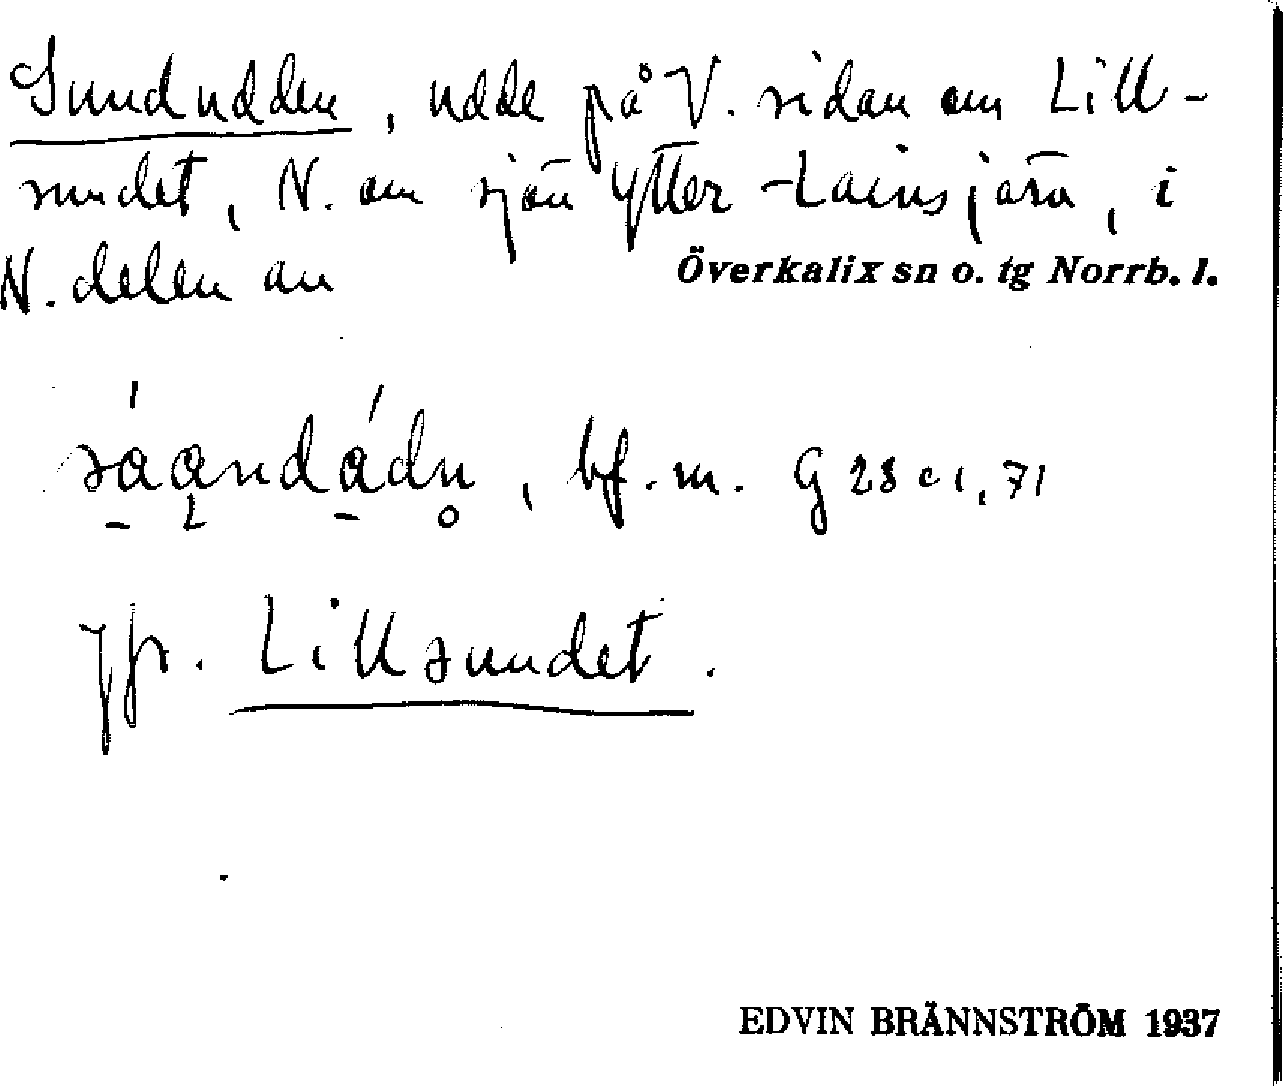 Sundudden, udde på V. sidan om Lill-
sundet, N. om sjön Ytter-Lainsjärv, i
N. delen av Överkalix sn o. tg Norrb. l.
bf. m. G 23 c 1, 71
jfr. Lillsundet.
EDVIN BRÄNNSTRÖM 1937